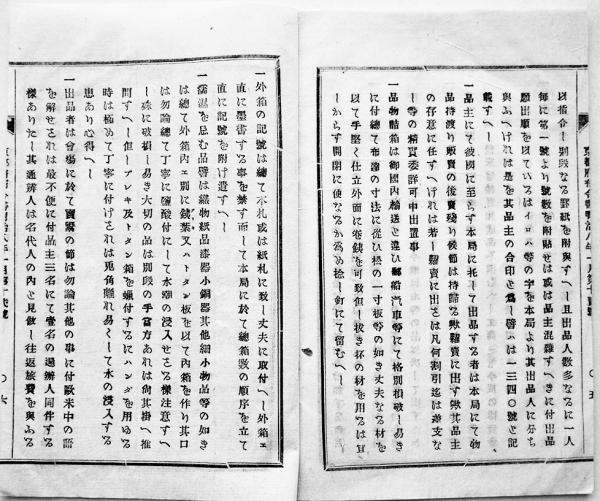 以指令し別段なる罫紙を附與すへし且出品人數多なるに一人
每に第一號より號數を附貼せは或は品主混雜すへきに付出品
願出順を以てい ろ は 等の字を本局より其出品人に分ち
與ふへければ是を其品主の合印と爲し譬へは一二三四〇號と記
載すへし
一品主にて彼國に至らす本局に托して出品する者は本局にて物
品持渡り販賣の後賣殘り候節は持歸る歟糶賣に出す歟其品主
の存意に任すへけれは若し糶賣に出さは凡何割引迄は差支な
し等の精實委詳可申出置事
一品物詰箱は御國內輸送と違ひ郵船汽車等にて格別損破し易き
に付總て布達の寸法に從ひ松の一寸板等の如き丈夫なる材を
以て手堅く仕立外面に卷鋏を可致但し拔き杯の材を用るは宜
しからす開閉に便なるか爲め捻し釘にて留むへし
一外箱の記號は總て木札或は紙札に致し丈夫に取付へし外箱エ
直に墨書する事を禁す而して本局に於て總箱數の順序を立て
直に記號を附け遣すへし
一濡濕を忌む品譬は織物紙品漆器小銅器其他細小物品等の如き
は總て外箱內エ別に銕葉又はトタン板を以て內箱を作り其口
は勿論總て丁寧に鹽酸付にして水潮の浸入せさる樣注意すへ
し殊に破損し易き大切の品は別段の手當方あれは尙其掛へ推
問すへし但しブレキ及トタン箱を蠟付するにハンダを用ゐる
時は極めて丁寧に付けされは兎角離れ易くして水の浸入する
患あり心得へし
一出品者は會場に於て賣鬻の節は勿論其他の事に付歐米中の語
を解せされは最不便に付品主三名にて壹名の通辨人同伴する
樣ありたし其通辨人は名代人の內と見做し往返旅費を與ふる